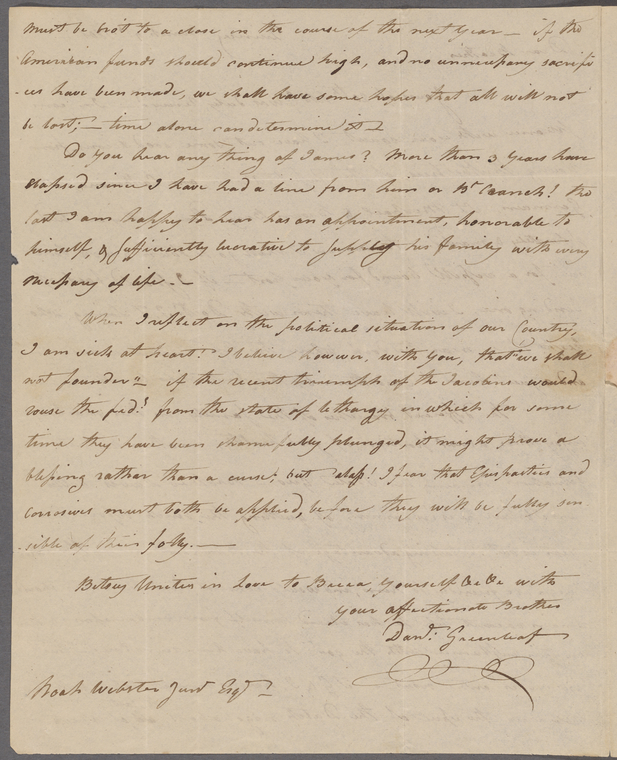 must be brot to a close in the course of the next Year — if the
American funds should continue high, and no unnecessary sacrifi
-ces have been made, we shall have some hopes that all will not
be lost; — time alone can determine it —
Do you hear any thing of James? More than 3 Years have
elapsed since I have had a line from him or Br Cranch! the
last I am happy to hear has an appointment, honorable to
himself, & sufficiently lucrative to supply his family with every
necessary of life. —
When I reflect on the political situation of our Country,
I am sick at heart! I believe however, with you, that "we shall
not founder" — if the recent triumph of the Jacobins would
rouse the fed.s from the state of lethargy in which for some
time they have been shamefully plunged, it might prove a
blessing rather than a curse; but alass! I fear that Epispastics and
corrosives must both be applied, before they will be fully sen
-sible of their folly. —
Betsey Unites in Love to Becca, yourself &c &c with
your affectionate Brother
Danl. Greenleaf
Noah Webster Junr Esqr